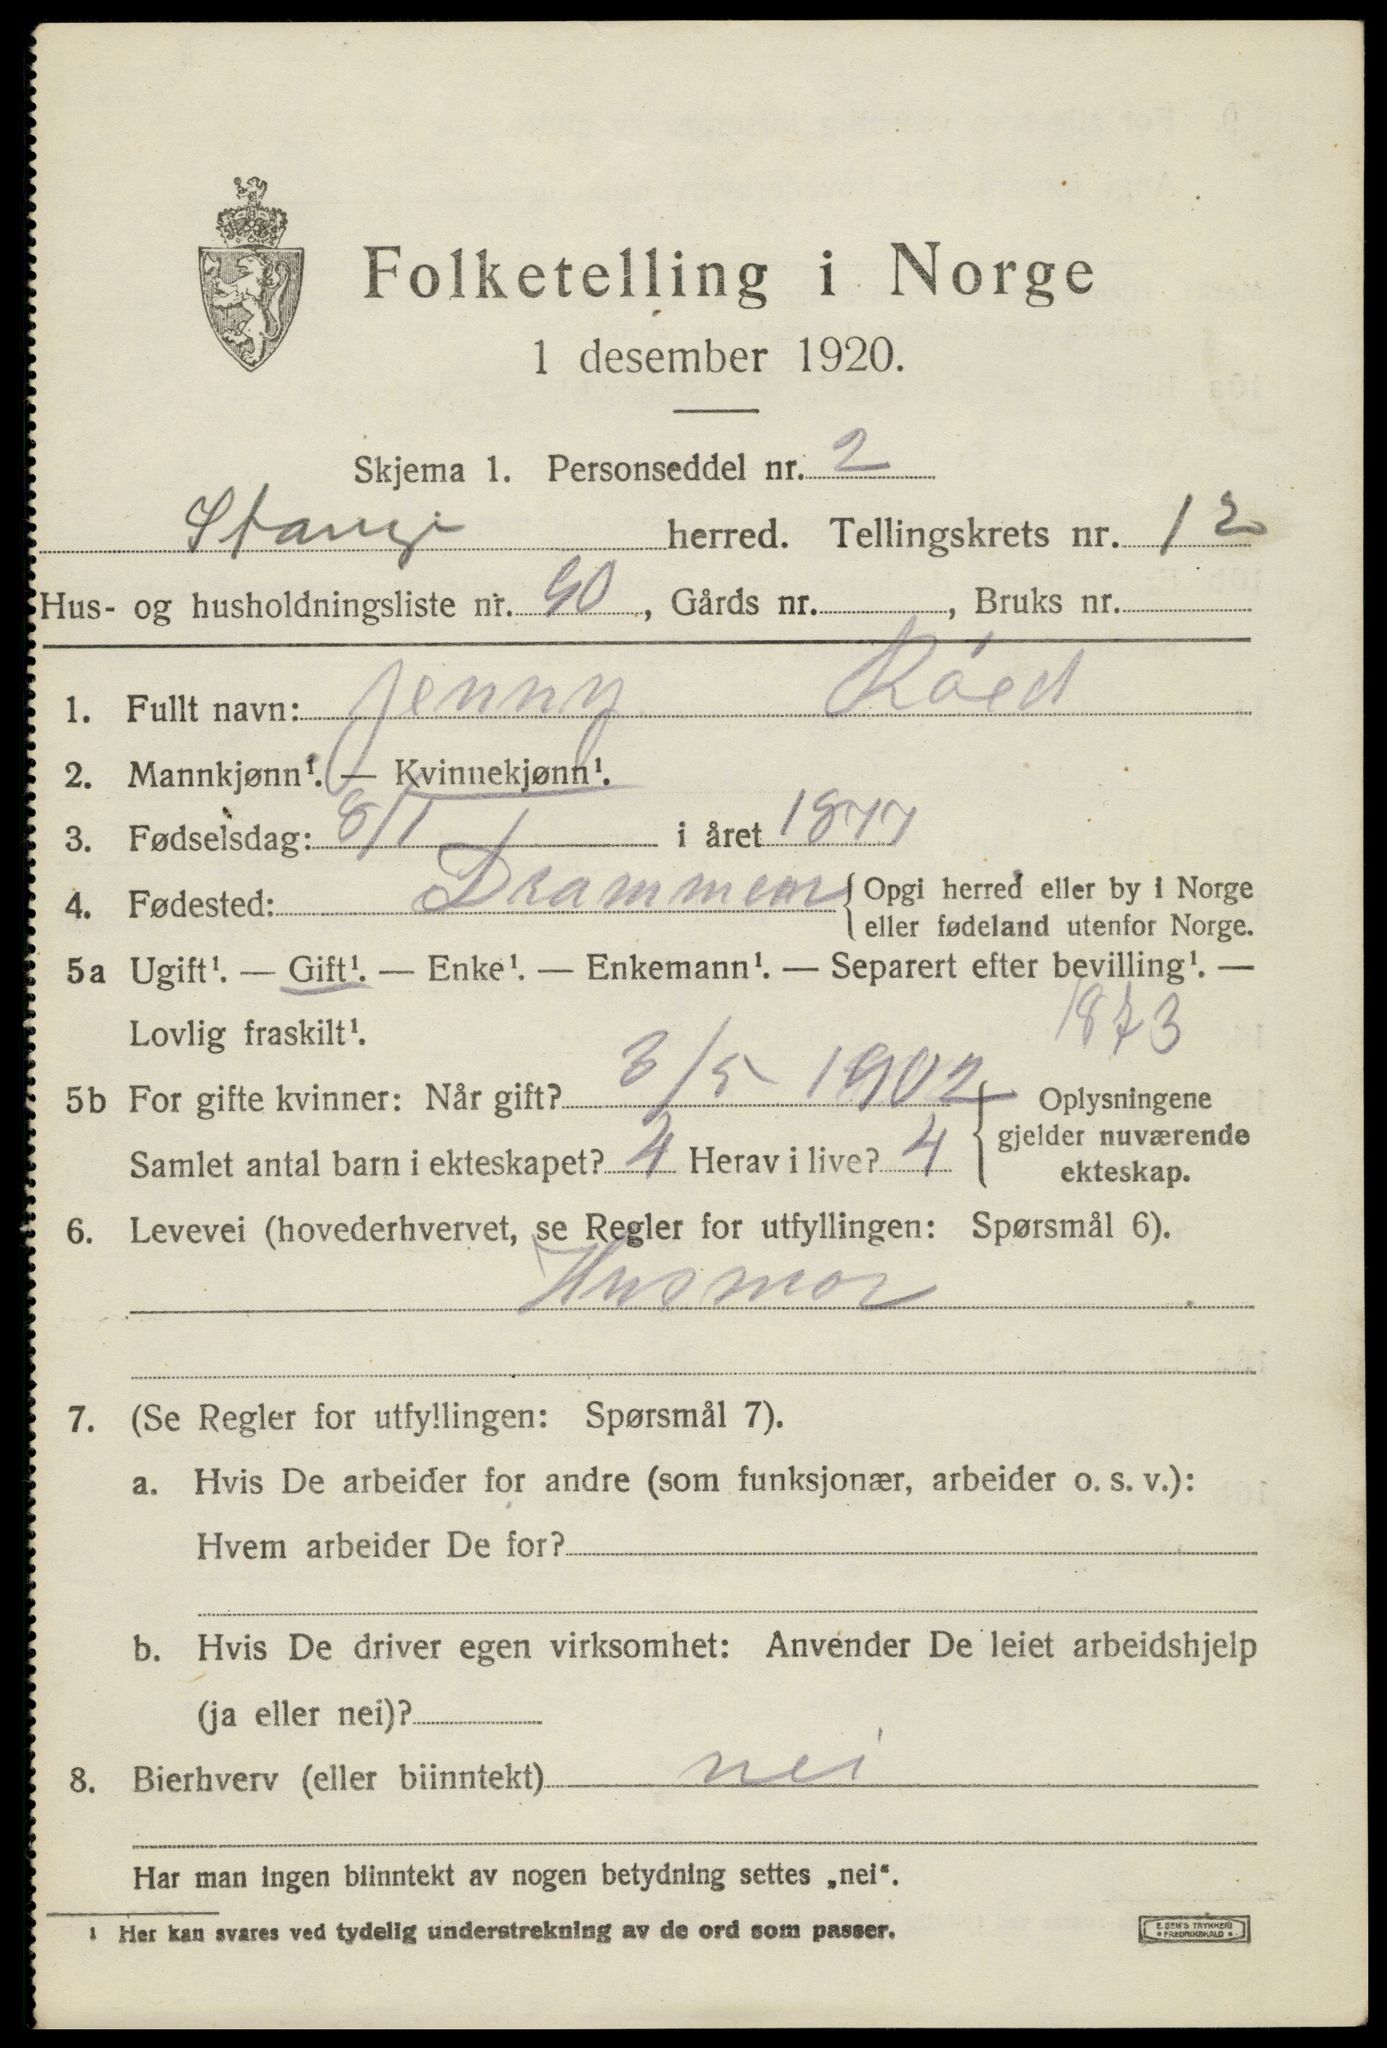 Folketelling i Norge
1 desember 1920.
Skjema 1. Personseddel nr. 2
Stange herred. Tellingskrets nr. 12
Hus- og husholdningsliste nr. 90, Gårds nr. , Bruks nr.
1. Fullt navn: Jenny Róed
2. Mannkjønn¹. — Kvinnekjønn¹.
3. Fødselsdag: 8/1 i året 1877
4. Fødested: Drammen { Opgi herred eller by i Norge
eller fødeland utenfor Norge.
5a Ugift¹. — Gift¹. — Enke¹. — Enkemann¹. — Separert efter bevilling¹. —
Lovlig fraskilt¹.
1873
5b For gifte kvinner: Når gift? 3/5 1902
Samlet antal barn i ekteskapet? 4 Herav i live? 4
{ Oplysningene
gjelder nuværende
ekteskap.
6. Levevei (hovederhvervet, se Regler for utfyllingen: Spørsmål 6).
Husmor
7. (Se Regler for utfyllingen: Spørsmål 7).
a. Hvis De arbeider for andre (som funksjonær, arbeider o. s. v.):
Hvem arbeider De for?
b. Hvis De driver egen virksomhet: Anvender De leiet arbeidshjelp
(ja eller nei)?
8. Bierhverv (eller biinntekt) nei
Har man ingen biinntekt av nogen betydning settes „nei“.
¹ Her kan svares ved tydelig understrekning av de ord som passer.
E. SEM'S TRYKKERI
• FREDRIKSHALD •